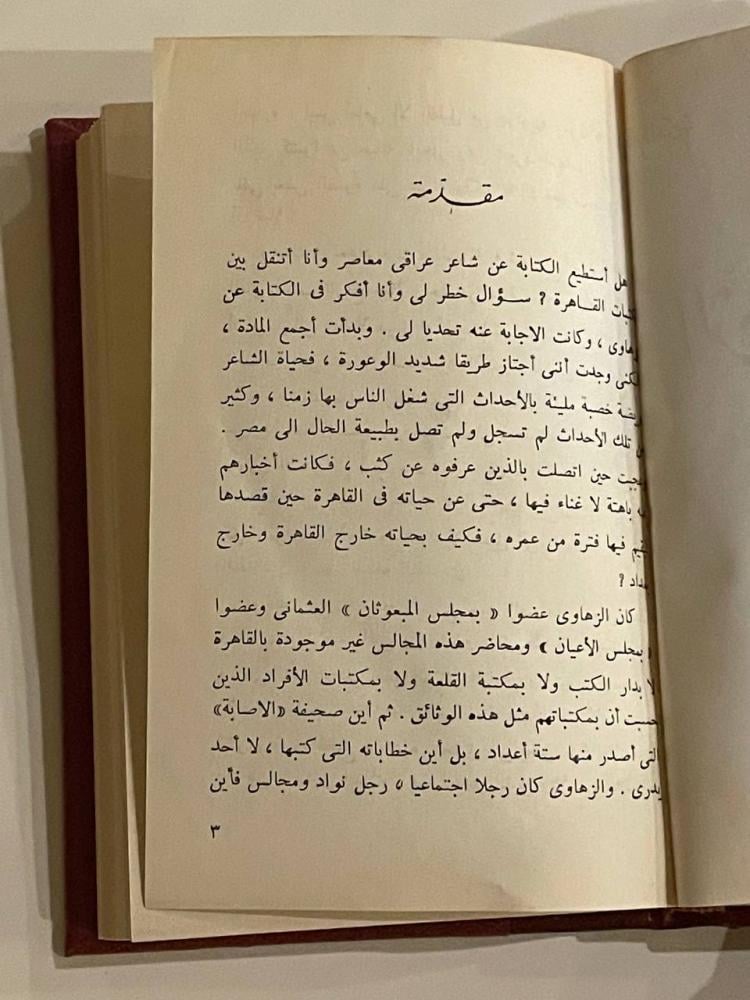 مقدمة
هل أستطيع الكتابة عن شاعر عراقى معاصر وأنا أتنقل بين
القاهرة ? ســؤال خطر لى وأنا أفكر فى الكتابة عن
، وكانت الاجابة عنه تحديا لى . وبدأت أجمع المادة ،
وجدت أننى أجتاز طريقا شديد الوعورة ، فحياة الشاعر
خصبة مليئة بالأحداث التى شغل الناس بها زمنا ، وكثير
تلك الأحداث لم تسجل ولم تصل بطبيعة الحال الى مصر .
حين اتصلت بالذين عرفوه عن كثب ، فكانت أخبارهم
باهتة لا غناء فيها ، حتى عن حياته فى القاهرة حين قصدها
فيها فترة من عمره ، فكيف بحياته خارج القاهرة وخارج
?
كان الزهاوى عضوا « بمجلس المبعوثان » العثمانى وعضوا
« بمجلس الأعيان » ومحاضر هذه المجالس غير موجودة بالقاهرة
لا بدار الكتب ولا بمكتبة القلعة ولا بمكتبات الأفراد الذين
حسبت أن بمكتباتهم مثل هذه الوثائق . ثم أين صحيفة «الاصابة»
التى أصدر منها ستة أعداد ، بل أين خطاباته التى كتبها ، لا أحد
يدرى . والزهاوى كان رجلا اجتماعيا ، رجل نواد ومجالس فأين
٣